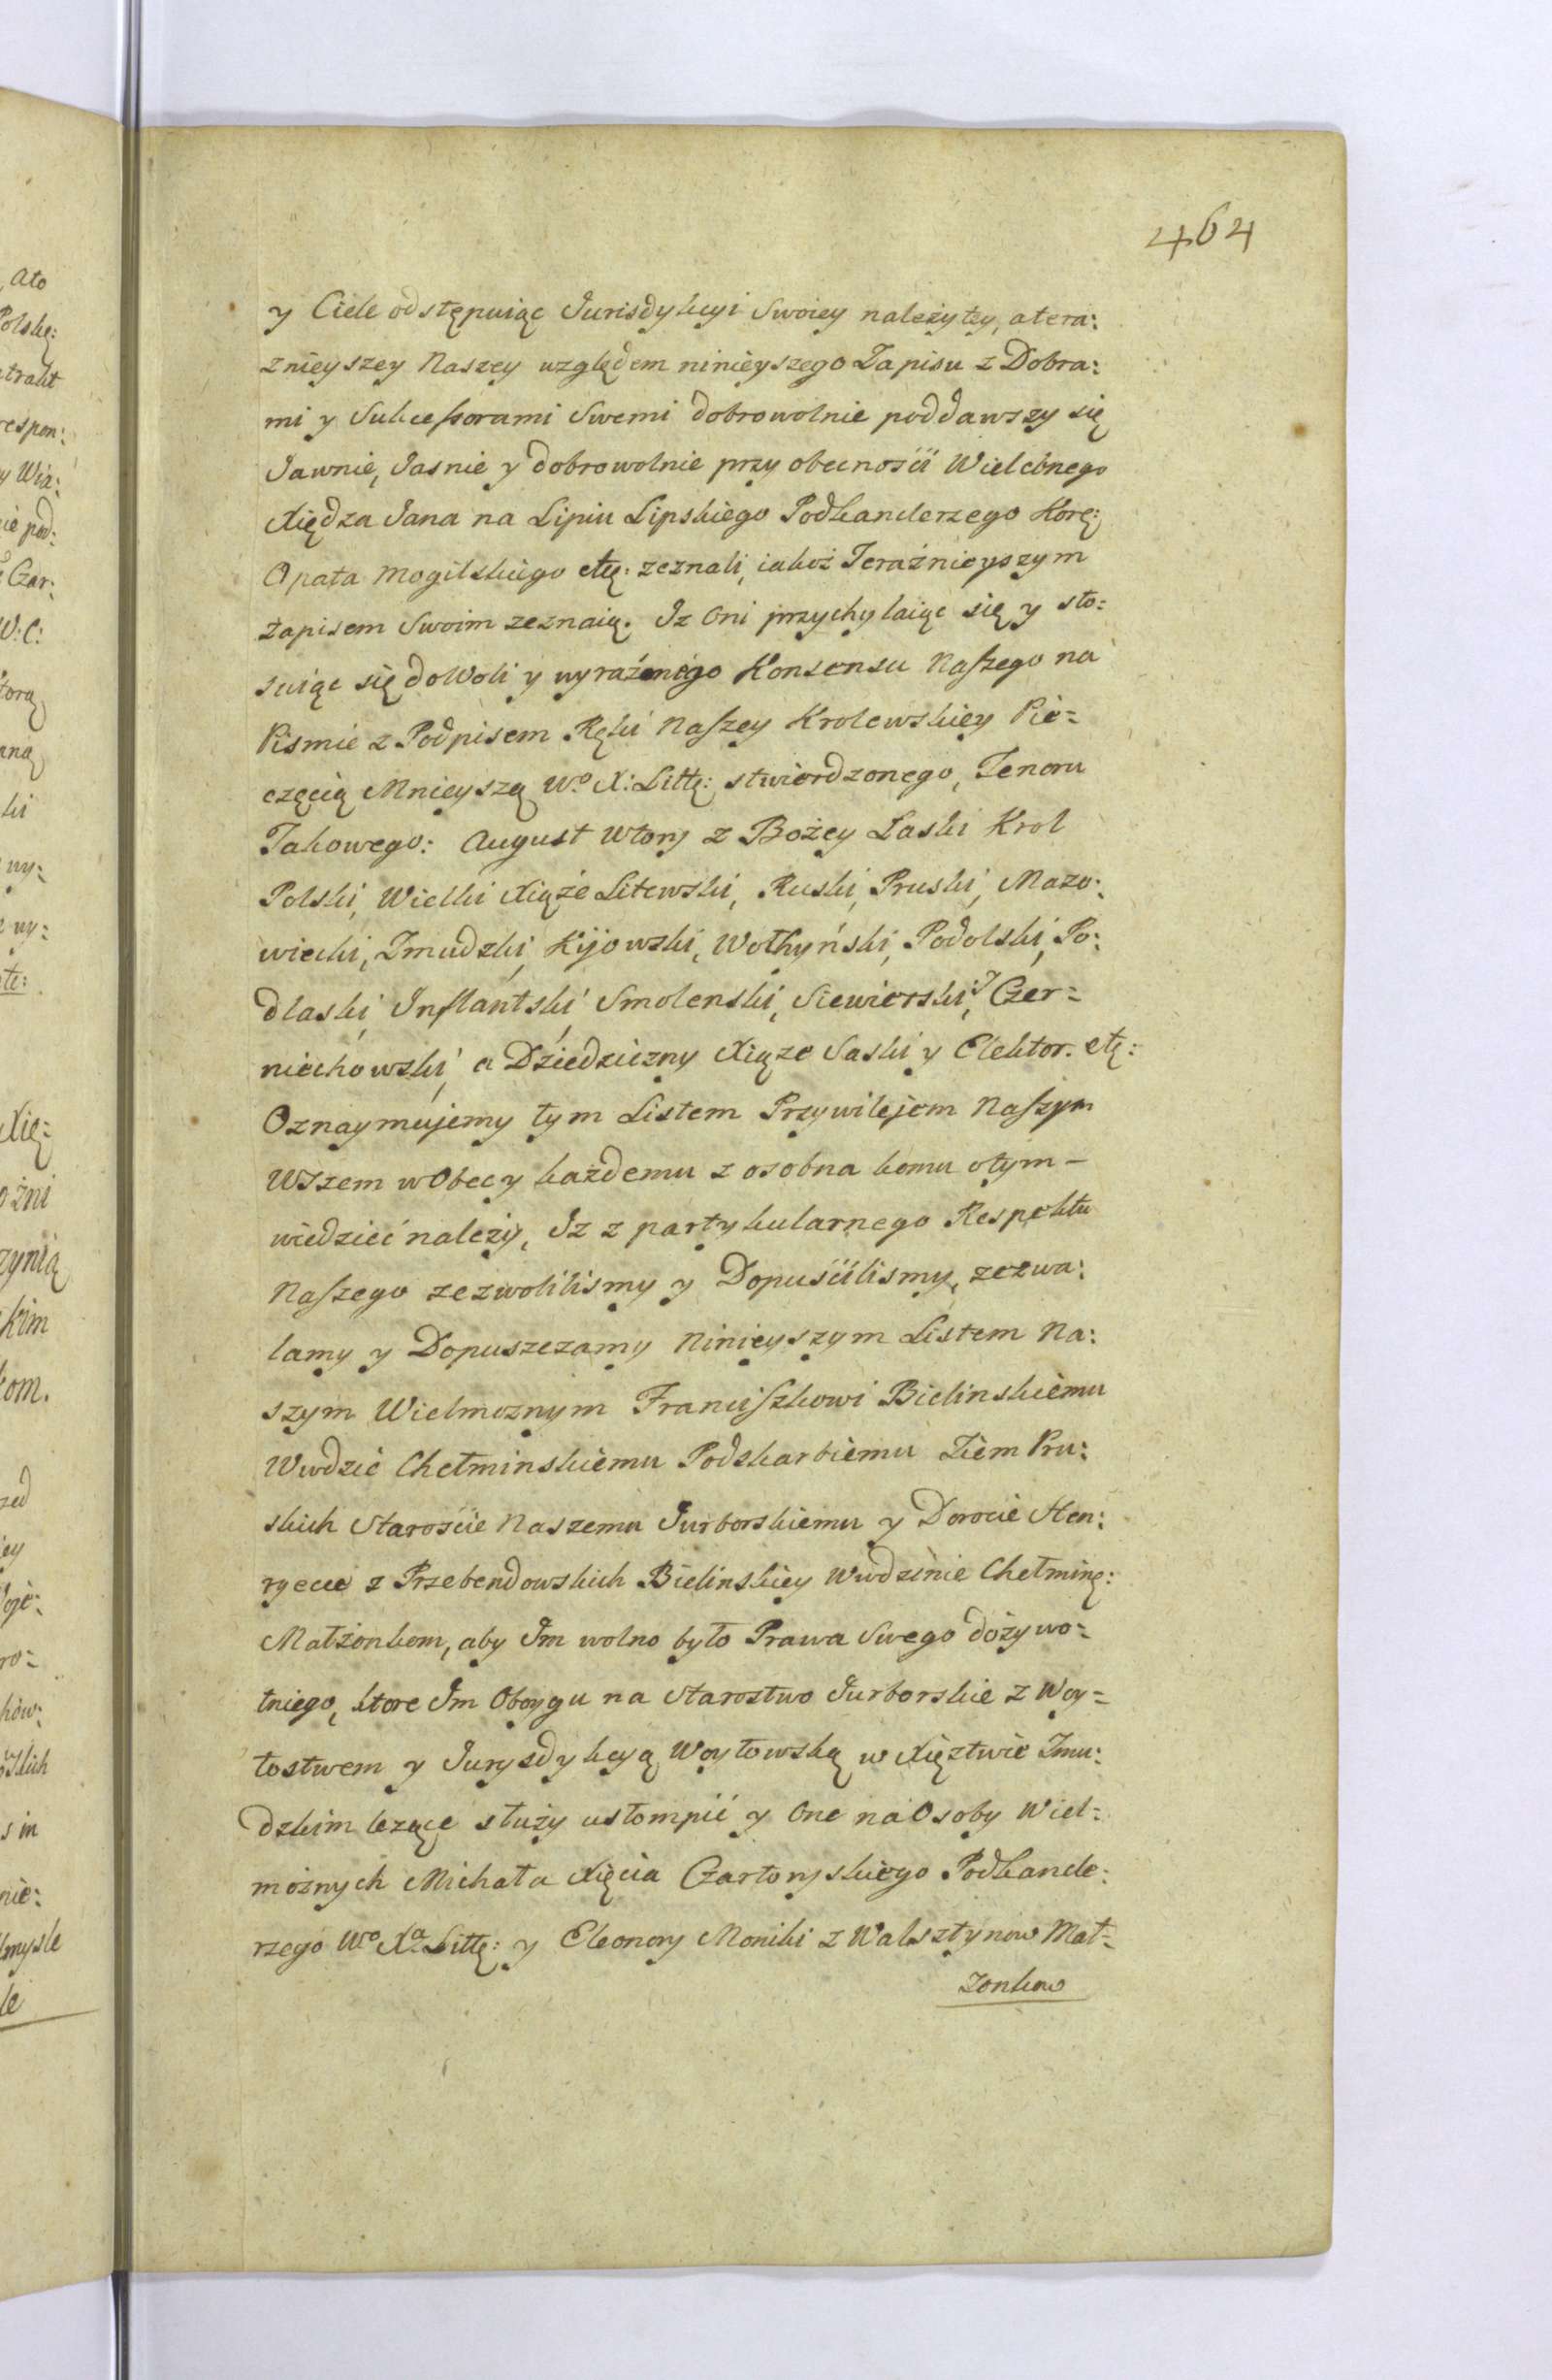 464
y Ciele odstępuiąc Jurisdykcyi Swoiey należytey, a tera:
znieyszey Naszey względem ninieyszego Zapisu z Dobra:
mi y Sukcessorami Swemi dobrowolnie poddawszy się
Jawnie, Jasnie y dobrowolnie przy obecności Wielebnego
Xiędza Jana na Lipiu Lipskiego Podkanclerzego Korę:
Opata Mogilskiego etę: zeznali, iakoż Teraźnieyszym
Zapisem Swoim zeznaią. Iz Oni przychylaiąc się y sto=
suiąc się do Woli y wyraźnego Konsensu Naszego na
Pismie z Podpisem Ręki Naszey Krolewskiey Pie=
częcią Mnieyszą Wo X: Littę: stwierdzonego, Tenoru
Takowego: August Wtory z Bożey Laski Krol
Polski, Wielki Xiąże Litewski, Ruski, Pruski, Mazo:
wiecki, Zmudzki, Kijowski, Wołhyński, Podolski, Po:
dlaski, Inflantski, Smolenski, Siewierski, y Czer=
niechowski, a Dziedziczny Xiąze Saski y Elektor. etę:
Oznaymujemy tym Listem Przywilejem Naszym
Wszem w Obec y każdemu z osobna komu o tym –
wiedzieć należy, Iz z partykularnego Respektu
Naszego zezwolilismy y Dopuścilismy, zezwa:
lamy y Dopuszczamy Ninieyszym Listem Na:
szym Wielmoznym Franciszkowi Bielinskiemu
Wwdzie Chełminskiemu Podskarbiemu Ziem Pru:
skich Starośćie Naszemu Jurborskiemu y Dorocie Hen:
ryecie z Przebendowskich Bielinskiey Wwdzinie Chełminę:
Małżonkom, aby Im wolno było Prawa Swego dożywo=
tniego, ktore Im Oboygu na Starostwo Jurborskie z Woy=
tostwem y Jurysdykcyą Woytowską w Xięztwie Zmu:
dzkim lezące służy ustompić y One na Osoby Wiel=
możnych Michała Xięcia Czartoryskiego Podkancle:
rzego Wo Xa Littę: y Eleonory Moniki z Walsztynow Mał=
zonkow